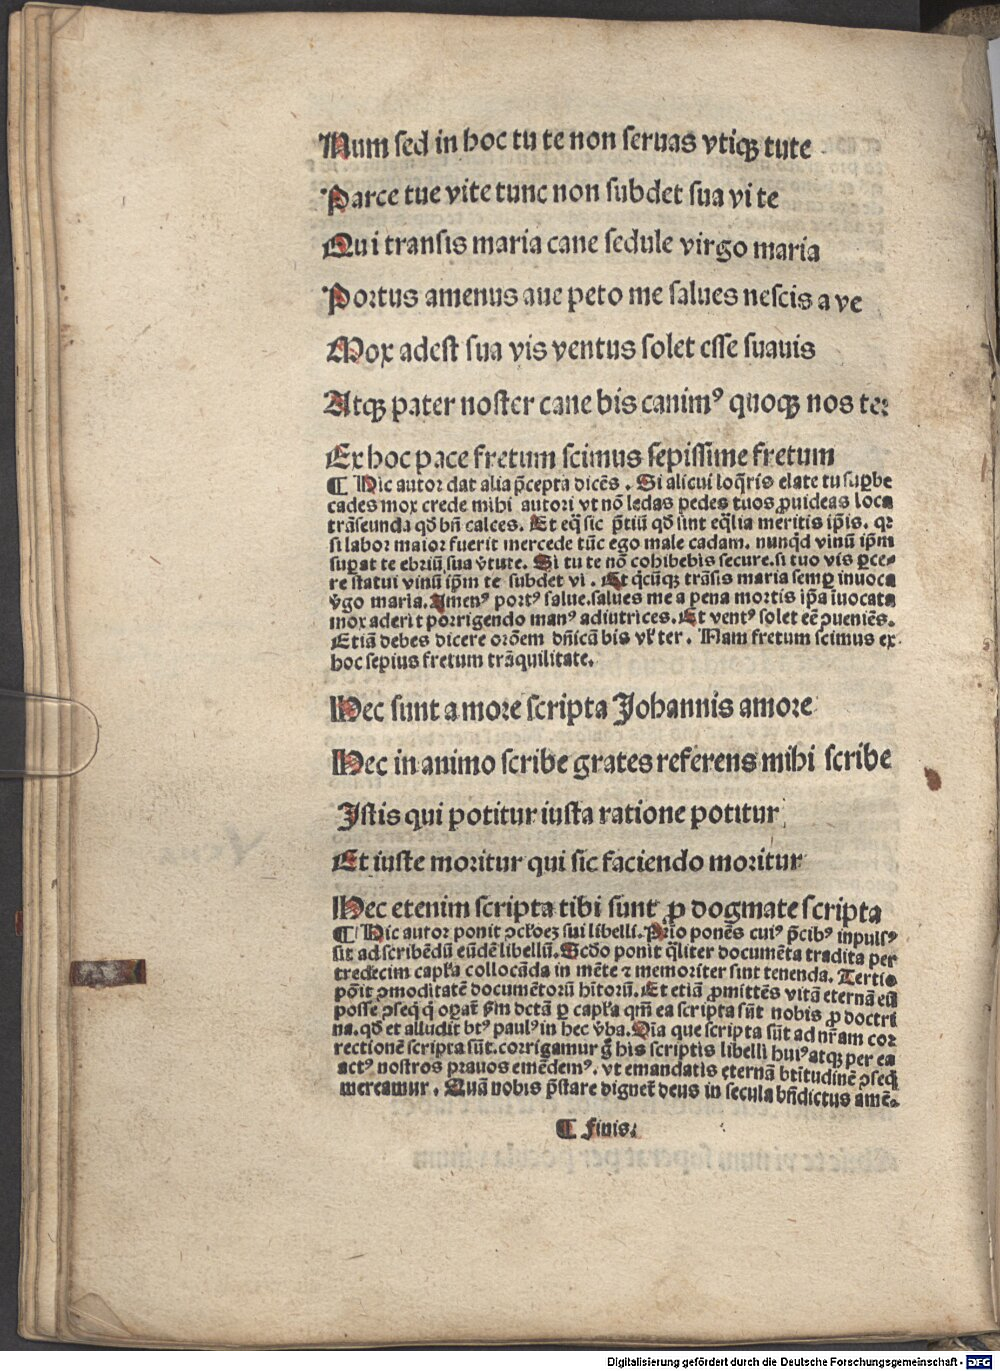 Num sed in hoc tu te non seruas vtiqꝫ tute
Parce tue vite tunc non subdet sua vi te
Qui transis maria cane sedule virgo maria
Portus amenus aue peto me salues nescis a ve
Mox adest sua vis ventus solet esse suauis
Atqꝫ pater noster cane bis canimꝰ quoqꝫ nos ter
Ex hoc pace fretum scimus sepissime fretum
¶ Hic autor dat alia p̄cepta dicēs . Si alicui loq̄ris elate tu suꝑbe
cades mox crede mihi autori vt nō ledas pedes tuos ꝓuideas loca
trāseunda qd̄ bn̄ calces. Et eq̄ sic p̄tiū qd̄ sint eq̄lia meritis ip̄is. qꝛ
si labor maior fuerit mercede tūc ego male cadam. nunqd̄ vinū ip̄m
suꝑat te ebriū sua v̄tute. Si tu te nō cohibebis secure. si tuo vis ꝑce⸗
re statui vinū ip̄m te subdet vi . Et q̄cūqꝫ trāsis maria semꝑ inuoca
v̄go maria. Amenꝰ portꝰ salue. salues me a pena mortis ip̄a īuocata
mox aderit porrigendo manꝰ adiutrices. Et ventꝰ solet eē̄ ꝓueniēs.
Etiā debes dicere orōem dn̄icā bis vl̓ ter . Nam fretum scimus ex
hoc sepius fretum trāquilitate.
Hec sunt a more scripta Johannis amore
Hec in animo scribe grates referens mihi scribe
Istis qui potitur iusta ratione potitur
Et iuste moritur qui sic faciendo moritur
Hec etenim scripta tibi sunt ꝓ dogmate scripta
¶ Hic autor ponit ꝯcl̓oeꝫ sui libelli. Prīo ponēs cuiꝰ p̄cibꝰ inpulsꝰ
sit ad scribēdū eūdē libellū. Scdo ponit q̄liter documēta tradita per
tredecim capl̓a collocāda in mēte ⁊ memoriter sunt tenenda. Tertio
pōit ꝯmoditatē documētorū hītorū. Et etiā ꝓmittēs vitā eternā eū
posse ꝯseq̄ q̄ oꝑat̄ s̄m dctā ꝑ capl̓a qm̄ ea scripta sūt nobis ꝓ doctri
na. qd̄ et alludit btꝰ paulꝰ in hec v̄ba. Oīa que scripta sūt ad nr̄am cor
rectionē scripta sūt. corrigamur g̊ his scriptis libelli huiꝰ atqꝫ per ea
actꝰ nostros prauos emēdemꝰ. vt emandatis eternā btītudinē ꝯseq̄
mereamur . Quā nobis p̄stare dignet̄ deus in secula bn̄dictus amē.
¶ Finis.
Digitalisierung gefördert durch die Deutsche Forschungsgemeinschaft - DFG